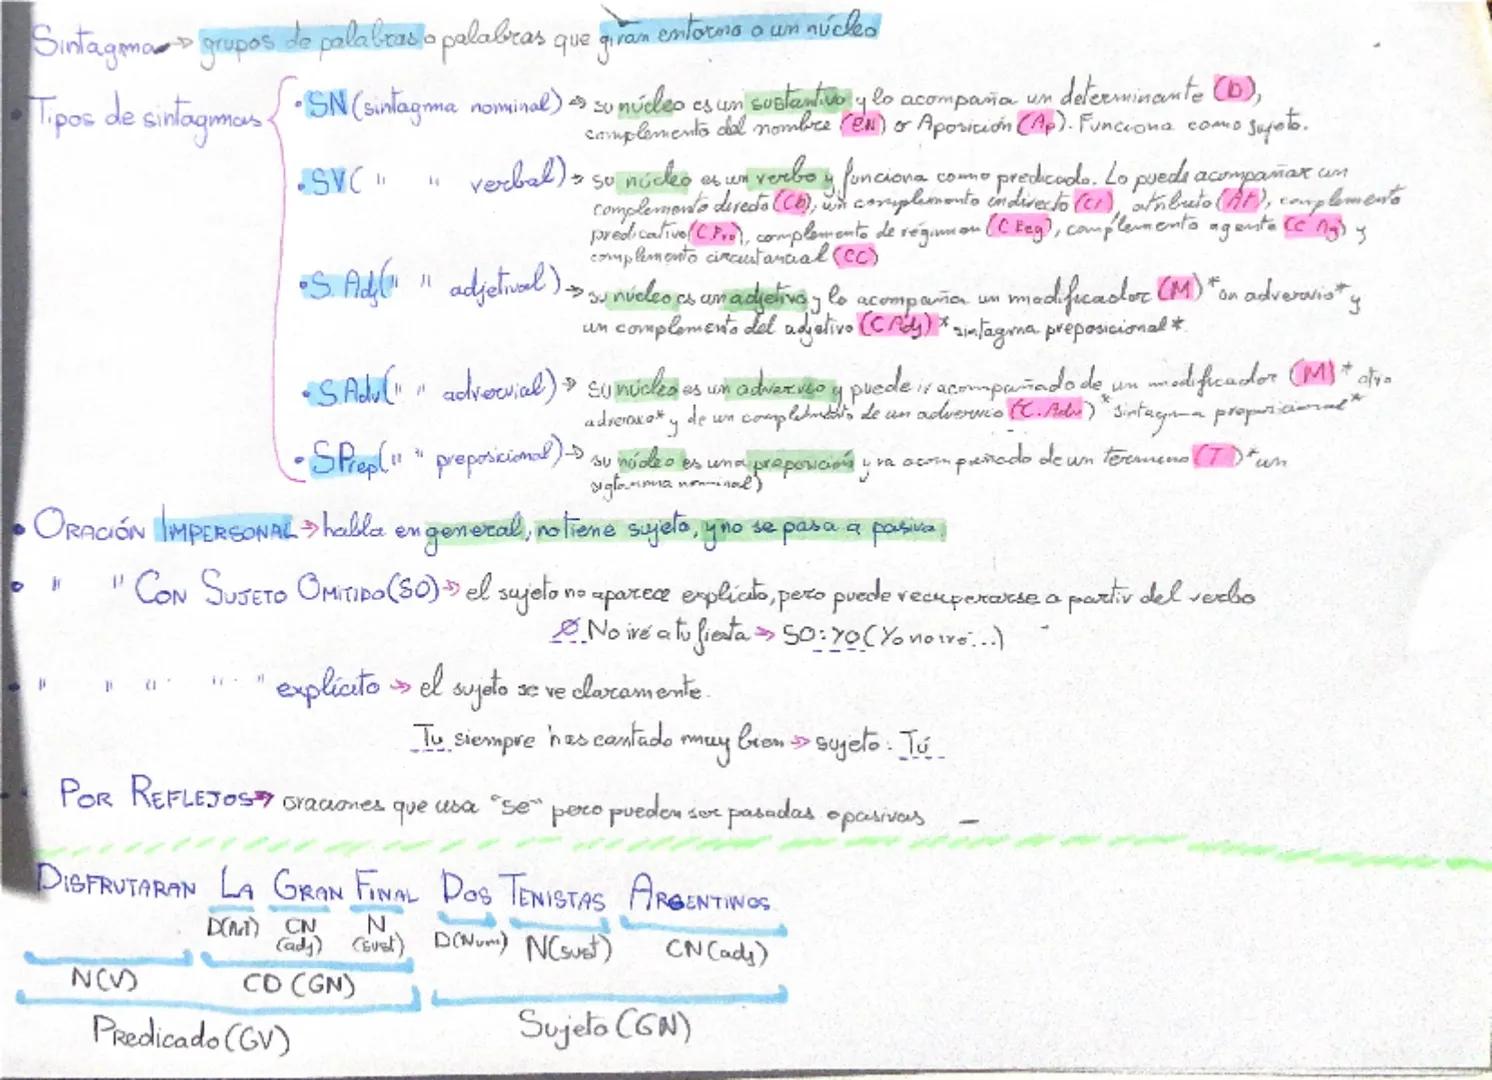 Sintagma → grupos de palabras o palabras que giran entorno a un núcleo
• Tipos de sintagmas
• SN (sintagma nominal) → su núcleo es un sustantivo y lo acompaña un determinante (D),
complemento del nombre (CN) o Aposición (Ap). Funciona como sujeto.
• SV ( " " verbal) → su núcleo es un verbo y funciona como predicado. Lo puede acompañar un
complemento directo (CD), un complemento indirecto (CI), atributo (At), complemento
predicativo (C.Pvo), complemento de régimen (C Reg), complemento agente (C Ag) y
complemento circustancial (CC)
• S. Adj ( " " adjetival) → su núcleo es un adjetivo y lo acompaña un modificador (M) *un advervio* y
un complemento del adjetivo (C Adj) * sintagma preposicional *
• S. Adv ( " " advervial) → su núcleo es un advervio y puede ir acompañado de un modificador (M) * otro
advervio* y de un complemento de un advervio (C. Adv) *sintagma preposicional*
• S Prep ( " " preposicional) → su núcleo es una preposición y va acompañado de un termino (T) *un
nominal)
• ORACIÓN IMPERSONAL → habla en general, no tiene sujeto, y no se pasa a pasiva.
• " " CON SUJETO OMITIDO (SO) → el sujeto no aparece explícito, pero puede recuperarse a partir del verbo
Ø No iré a tu fiesta → SO: YO (Yo no iré...)
• " " " " " explícito → el sujeto se ve claramente.
Tu siempre has cantado muy bien → sujeto: Tú
POR REFLEJOS → oraciones que usa "se" pero pueden ser pasadas a pasivas
DISFRUTARAN LA GRAN FINAL DOS TENISTAS ARGENTINOS
D(Art) CN (adj) N (sust) D(Num) N(sust) CN(adj)
N(V) CD (GN)
Predicado (GV) Sujeto (GN)